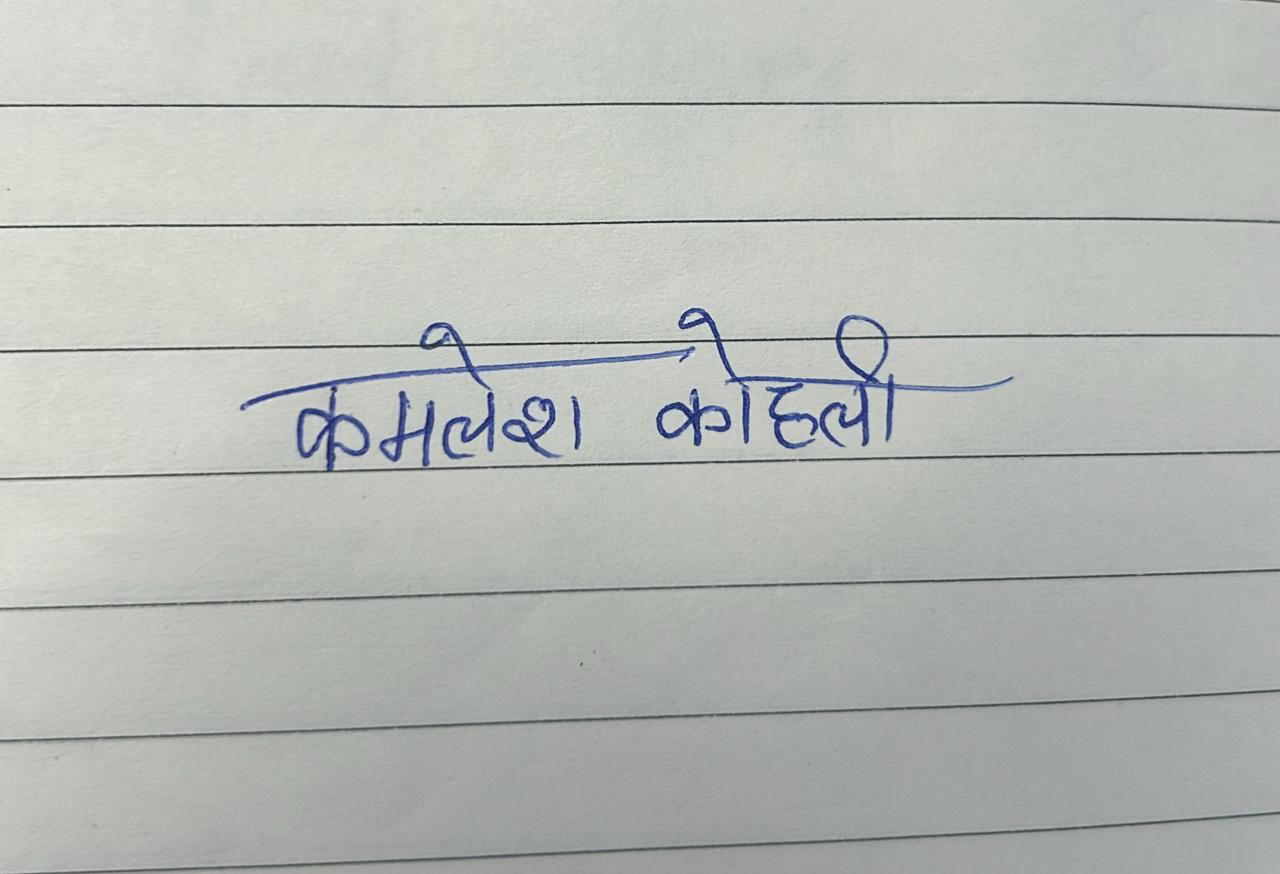 कमलेश कोहली